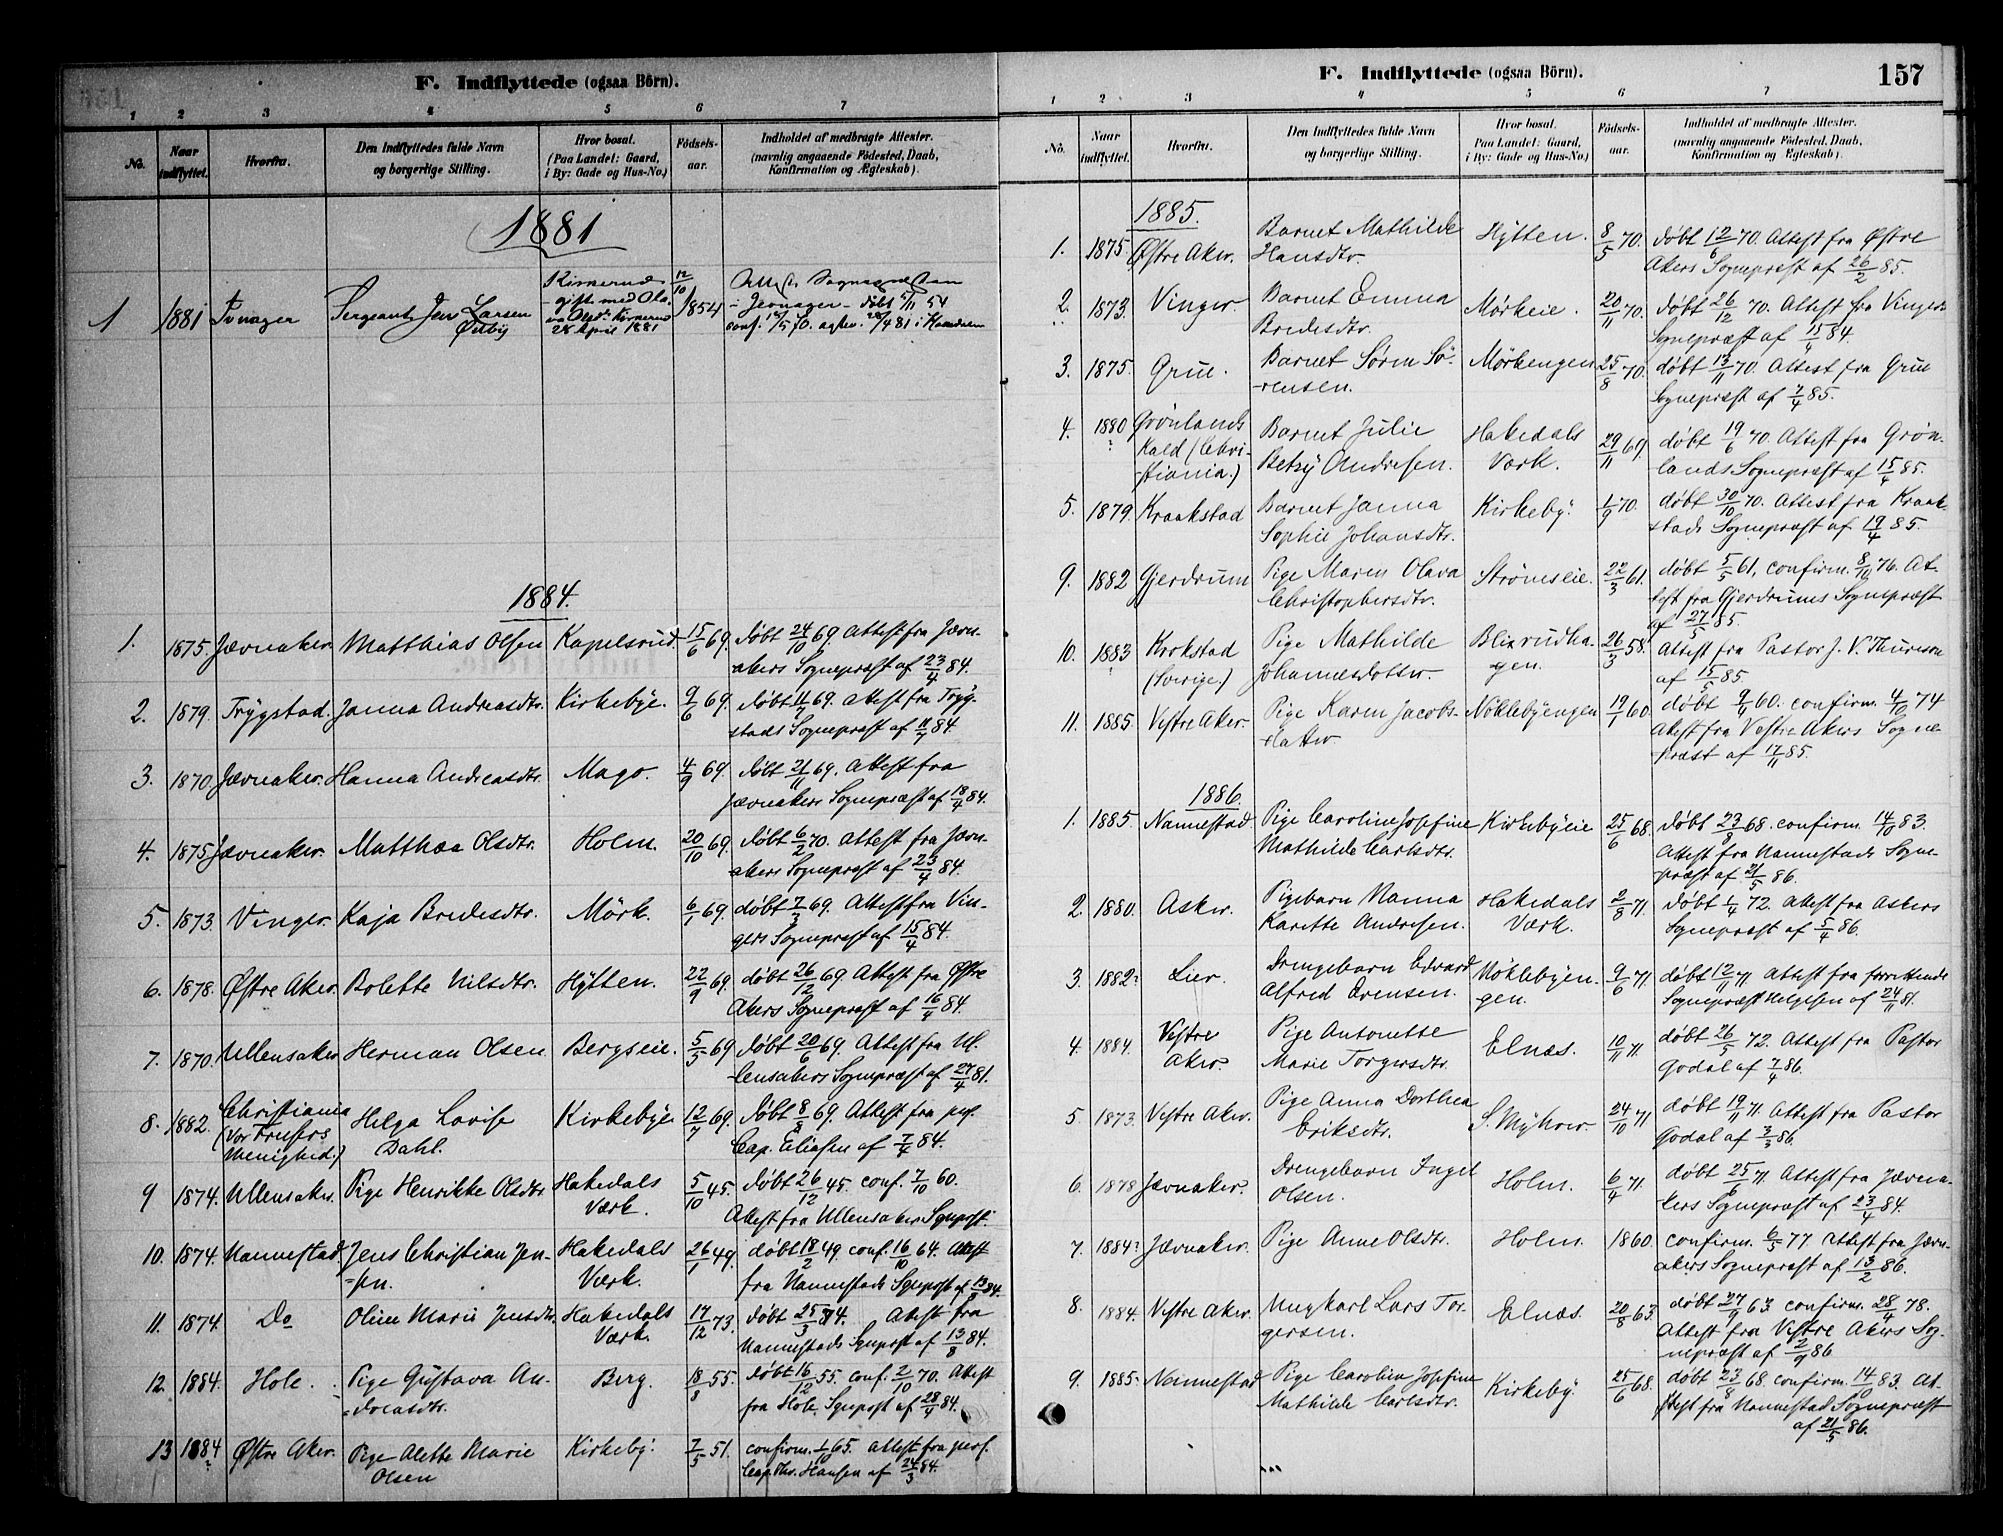 F. Indflyttede (ogsaa Börn).
1 2 3 4 5 6 7
No. Naar indflyttet. Hvorfra. Den Indflyttedes fulde Navn og borgerlige Stilling. Hvor bosat. (Paa Landet: Gaard, i By: Gade og Hus-No.) Fødsels-aar. Indholdet af medbragte Attester. (navnlig angaaende Födested, Daab, Konfirmation og Ægteskab).
1881
1 1881 Sergeant Jens Larsen 12/10 1854
gift med
28 April 1881
1884.
1. 1875. Jævnaker. Matthias Olsen Kapelsrud. 15/6 69. døbt 24/10 69. Attest fra Jævn-
akers Sognepræst af 23/4 84.
2. 1879. Trygstad. Janna Andreasdtr. Kirkebye. 9/6 69. døbt 11/7 69. Attest fra Tryg-
stads Sognepræst af 84.
3. 1870. Jævnaker. Hanna Andreasdtr. Mago. 4/9 69. døbt 21/11 69. Attest fra
Jævnakers Sognepræst af 18/4 84.
4. 1875. Jævnaker. Matthea Olsdtr. Holm. 20/10 69. døbt 6/2 70. Attest fra Jævn-
akers Sognepræst af 23/4 84.
5. 1873. Vinger. Kaja Bredesdtr. Mörk. 6/1 69. døbt 7/3 69. Attest fra Vin-
gers Sognepræst af 15/4 84.
6. 1878. Østre Aker. Bolette Nilsdtr. Hytten. 22/9 69. døbt 26/12 69. Attest fra Østre
Akers Sognepræst af 16/4 84.
7. 1870. Ullensaker Herman Olsen Bergseie. 5/5 69 døbt 20/6 69. Attest fra Ul-
lensakers Sognepræst af 27/4 81.
8. 1882. Christiania (Vor Frelsers Menighed.) Helga Lovise Dahl. Kirkebye 12/7 69. døbt 8/8 69. Attest fra pers.
Cap. Eliasen af 7/4 84.
9 1874. Ullensaker. Pige Henrikke Olsdtr. Hakedals Værk. 5/10 45. døbt 26/12 45. conf. 7/10 60.
Attest fra Ullensaker Sgnprst.
10. 1874. Nannestad. Jens Christian Jen-
-sen. Hakedals Værk. 26/1 49. døbt 18/2 49 conf. 16/10 64. Attest
fra Nannestads Sgnprst af 13/8 84.
11. 1874. Do Oline Marie Jensdtr. Hakedals Værk. 17/12 73. døbt 25/3 74. Attest fra
Nannestads Sgnprst af 13/8 84.
12. 1884. Hole. Pige Gustava An-
dreasdtr. Berg. 18/8 55. døbt 16/12 55. conf. 2/10 70. Attest
fra Hole Sgnprst af 28/4 84.
13 1884 Østre Aker. Pige Alette Marie
Olsen Kirkeby. 7/5 51. confirm. 1/10 65. Attest fra pers.
Cap. Hansen af 24/3 84.
F. Indflyttede (ogsaa Börn). 157
1 2 3 4 5 6 7
No. Naar indflyttet. Hvorfra. Den Indflyttedes fulde Navn og borgerlige Stilling. Hvor bosat. (Paa Landet: Gaard, i By: Gade og Hus-No.) Födsels-aar. Indholdet af medbragte Attester. (navnlig angaaende Födested, Daab, Konfirmation og Ægteskab).
1885.
1. 1875 Østre Aker. Barnet Mathilde
Hansdtr. Hytten. 8/5 70. døbt 12/6 70. Attest fra Østre
Akers Sognepræst af 26/2 85.
2. 1873. Vinger. Barnet Emma
Bredesdtr. Mørkeie. 20/11 70. døbt 26/12 70. Attest fra Vingers
Sognepræst af 15/4 84.
3. 1875. Grue. Barnet Sørin Sö-
-rensen. Mørkengen. 25/8 70. døbt 13/11 70. Attest fra Grue
Sognepræst af 7/4 85.
4. 1880 Grønlands Kald (Chri-
stiania.) Barnet Julie
Betsy Andresen. Hakedals Værk. 29/11 69. døbt 19/6 70. Attest fra Grøn-
lands Sognepræst af 15/4 85.
5. 1879. Kraakstad Barnet Janna
Sophie Johansdtr. Kirkeby. 1/9 70. døbt 30/10 70. Attest fra Kraak-
stads Sognepræst af 19/4 85.
9. 1882 Gjerdrum Pige Maren Olava
Christophersdtr. Strømseie. 22/3 61. døbt 5/5 61, confirm. 8/10 76. At-
test fra Gjerdrums Sognepræst
af 27/5 85.
10. 1883 Krokstad (Sverige.) Pige Mathilde
Johannesdotter. Blixrudha-
gen. 26/3 58. Attest fra Pastor J. V. Thureson
af 15/5 85.
11. 1885 Vestre Aker. Pige Karen Jacobs-
datter. Nöklebyengen 19/1 60. døbt 60. confirm. 4/10 74
Attest fra Vestre Akers Sogne-
præst af 17/11 85.
1886.
1. 1885. Nannestad Pige Caroline Josefine
Mathilde Carlsdtr. Kirkebyeie 25/6 68. døbt 23/8 68. confirm. 14/10 83.
Attest fra Nannestads Sogne-
præst af 21/5 86.
2. 1880. Asker. Pigebarn Nanna
Karette Andresen. Hakedals Værk. 2/8 71. døbt 1/4 72. Attest fra Askers
Sognepræst af 5/4 86.
3. 1882? Lier. Drengebarn Edvard
Alfred Evensen. Nöklebyen-
gen. 9/6 71. døbt 12/11 71 Attest fra forrettende
Sognepræst Helgesen af 24/11 81.
4. 1884. Vestre Aker. Pige Antonette
Marie Torgersdtr. Elnæs. 10/11 71. døbt 26/5 72. Attest fra Pastor
Godal af 7/4 86.
5 1873. Vestre Aker. Pige Anna Dorthea
Eriksdtr. S. Myhrer. 24/10 71 døbt 19/11 71. Attest fra Pastor
Godal af 3/3 86.
6. 1878 Jævnaker. Drengebarn Ingel
Olsen. Holm. 6/4 71. døbt 25/6 71. Attest fra Jævna-
kers Sognepræst af 23/4 84.
7. 1884? Jævnaker. Pige Anne Olsdtr. Holm. 1860. confirm. 6/5 77 Attest fra Jævn-
akers Sognepræst af 13/2 86.
8. 1884. Vestre Aker. Ungkarl Lars Tor-
gersen. Elnæs. 20/8 63. døbt 27/9 63. confirm. 28/4 78.
Attest fra Vestre Akers Sog-
nepræst af 2/9 86
9. 1885. Nannestad Pige Caroline Josefine
Mathilde Carlsdtr. Kirkeby. 25/6 68. døbt 23/8 68. confirm. 14/10 83. At-
test fra Nannestad Sognepræst
af 21/5 86.